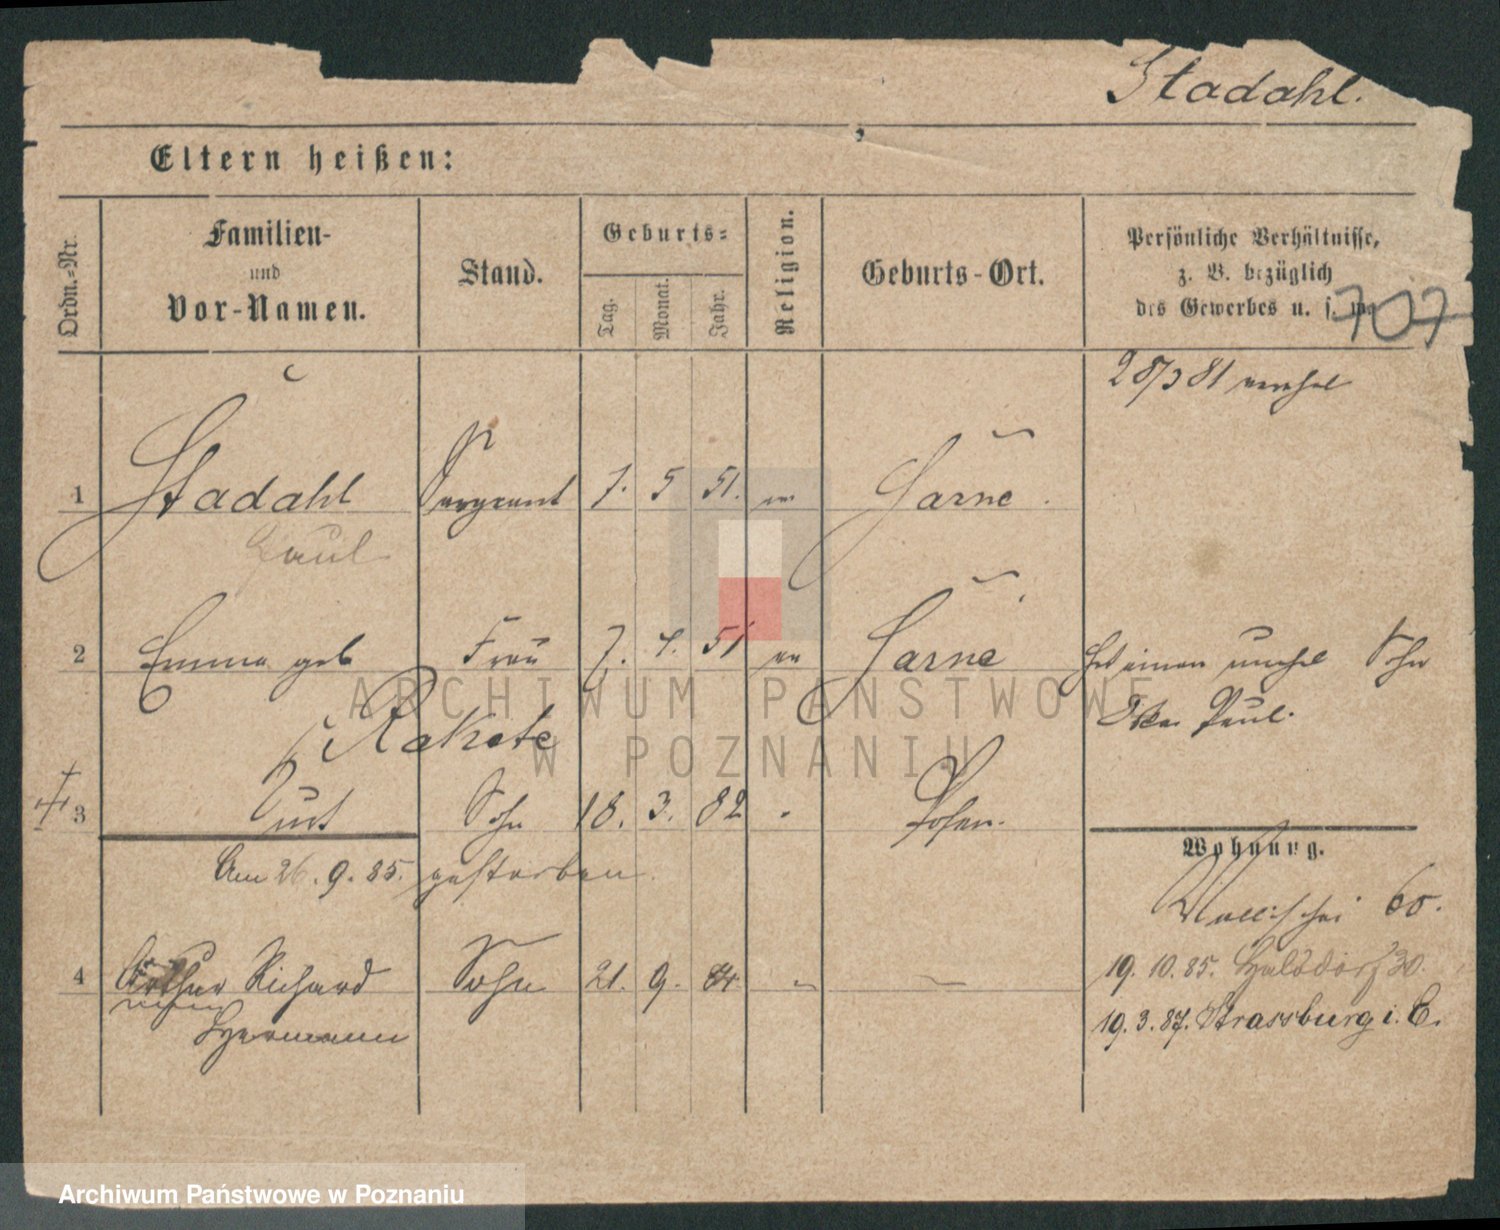 Stadahl.
Eltern heißen:
Ordn.-Nr.
Familien-
und
Vor-Namen.
Stand.
Geburts-
Tag.
Monat.
Jahr.
Religion.
Geburts-Ort.
Persönliche Verhältnisse,
z. B. bezüglich
des Gewerbes u. s. w.
707
28/3 81 verehel
1 Stadahl Sergeant 7. 5 51. ev Sarne.
Paul
2 Emma geb Frau 7. 4. 51 ev Sarne Hat einen unehel Sohn
Rakete
Paul.
3 Curt Sohn 18. 3. 82 " Posen.
Wohnung.
Am 26. 9. 85. gestorben.
Wallischei 60.
4 Arthur Richard Sohn 21. 9. 84. "
Hermann
19. 10. 85. Halbdorf 30.
19. 3. 87. Strassburg i. E.
ARCHIWUM PAŃSTWOWE
W POZNANIU
Archiwum Państwowe w Poznaniu